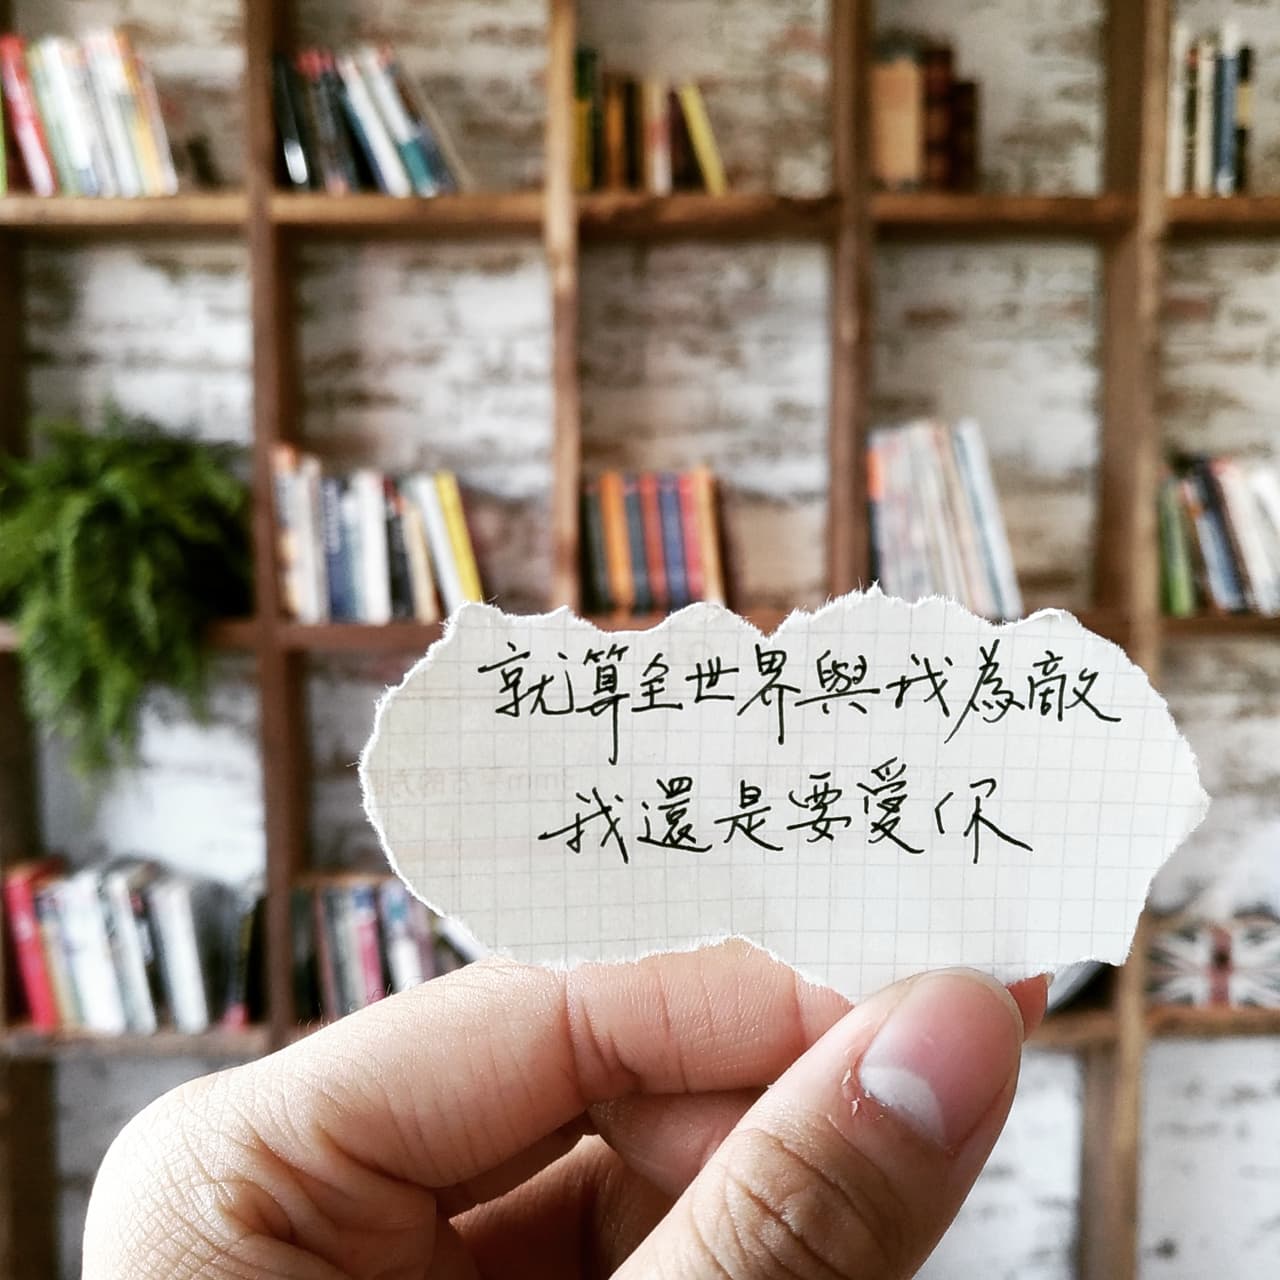 就算全世界與我為敵
我還是要愛你